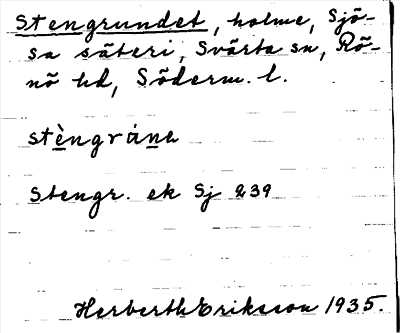 Stengrundet, holme, Sjö-
sa säteri, Svärta sn, Rö-
nö hd, Söderm. l.
stèngráne
Stengr. ek Sj 239
Herberth Eriksson 1935.